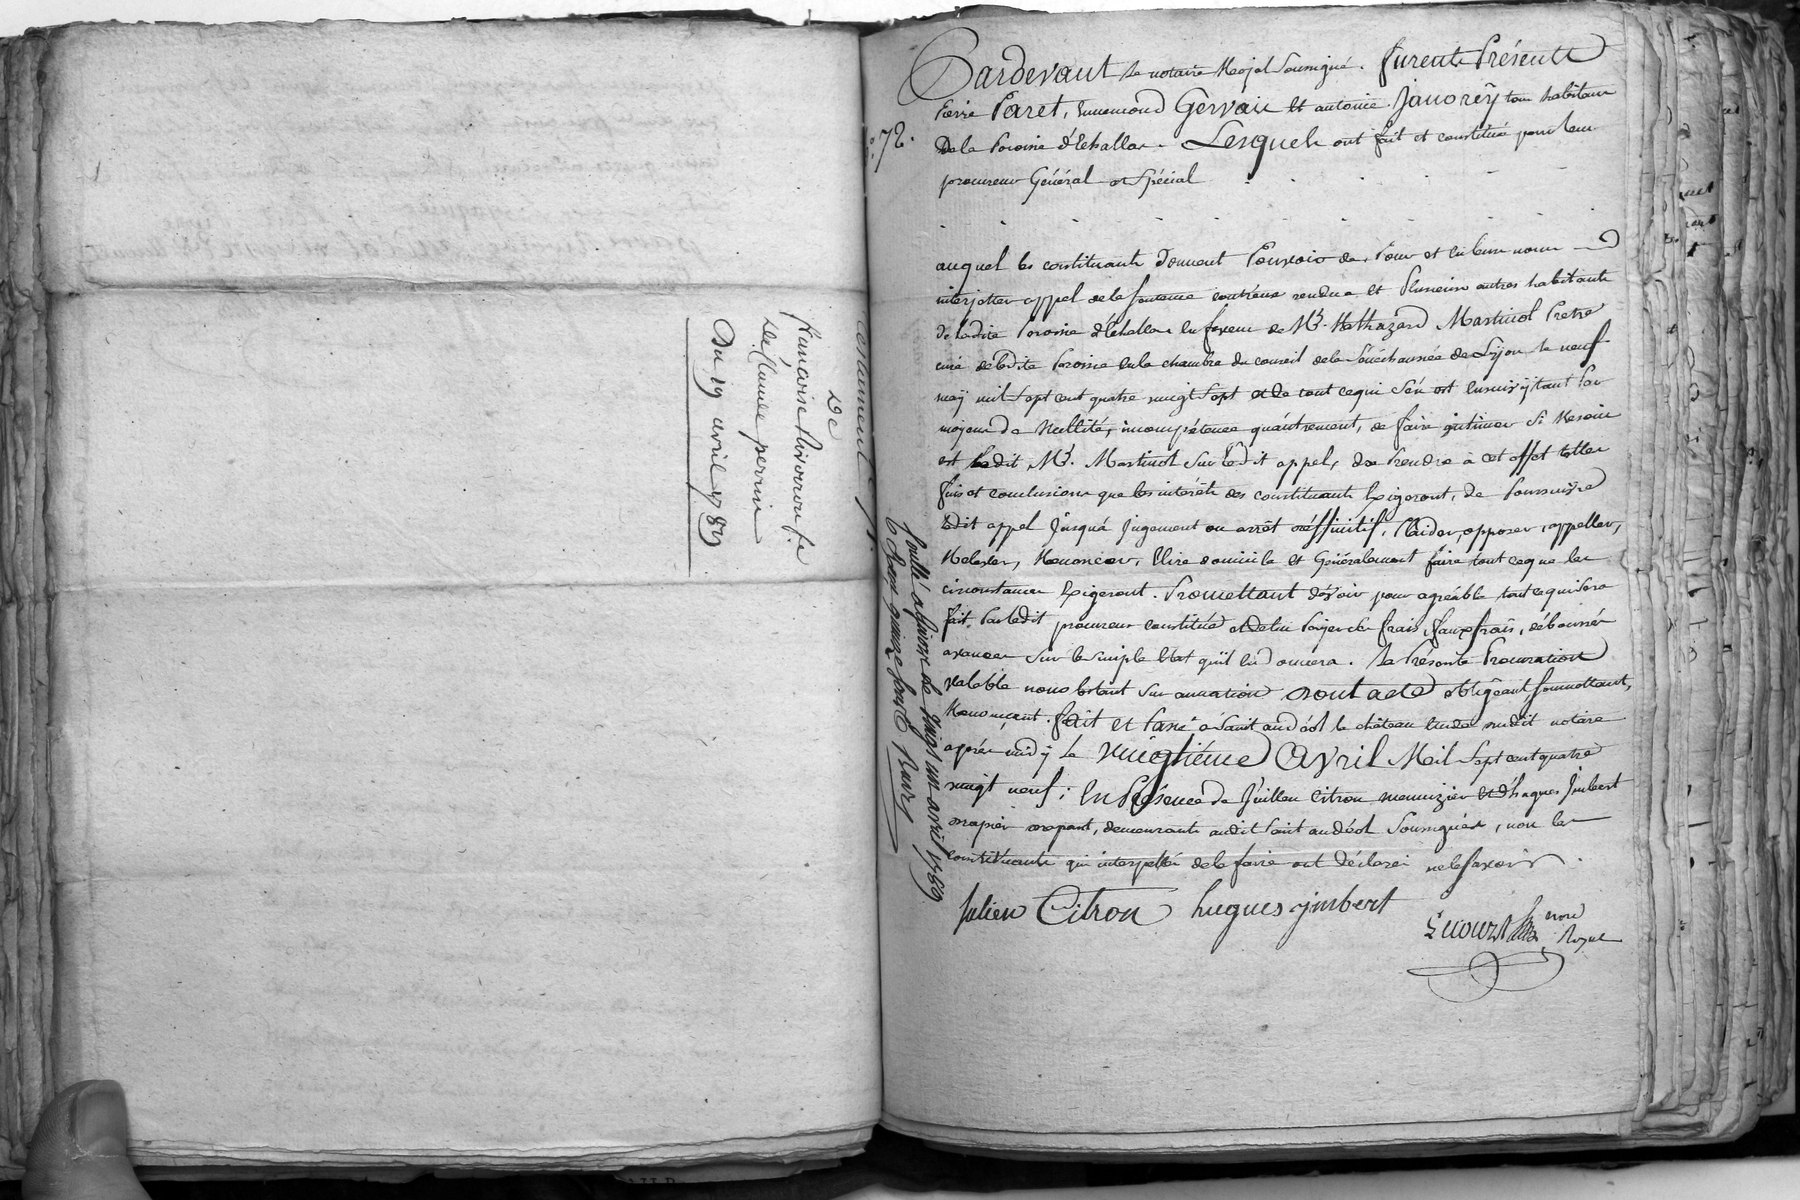 De
francoise
De Claude perrin
Du 19 avril 1789
No. 72.
Pardevant Le notaire Royal Soussigné. furent Présents
Pierre Paret, Ennemond Gervais Et antoine Janorey tous habitans
De la Paroisse d'Echallas. Lesquels ont fait et constitué pour leur
procureur Général et Spécial
auquel les constituants donnent Pouvoir de, Pour et en leurs noms
interjetter appel de la sentence contr'eux rendue Et Plusieurs autres habitants
de ladite Paroisse d'Echallas en faveur de Mr. Balthazard Martinol Pretre
curé deladite Paroisse en la chambre du conseil dela Sénéchaussée de Lyon le neuf
may mil sept cent quatre vingt sept et de tout cequi s'en est ensuivy tant Par
moyens de Nullité, incompétence qu'autrement, de faire intimer Si Besoin
est Ledit Mr. Martinol Sur Ledit appel, de Prendre à cet effet telles
fins et conclusions que les intérêts des constituants Exigeront, de Poursuivre
Ledit appel Jusqu'à Jugement ou arrêt définitif, Plaider, opposer, appeller,
Renoncer, Elire domicile Et Généralement faire tout ceque les
circonstances Exigeront. Promettant d'avoir pour agréable tout cequi sera
fait Par Ledit procureur constitué et de lui Payer les frais, faux frais, déboursés
avances Sur le simple Etat qu'il en donnera. La Présente Procuration
valable nonobstant Sur annation Dont acte obligeant, Soumettant,
Renonçant. fait et Passé à Saint andéol le château Etude dudit notaire
après midy Le vingtième Avril Mil Sept cent quatre
vingt neuf; En Présence de Juillen Citron menuizier Et d'hugues Jmbert
drapier drapant, demeurants audit Saint andéol Soussignés, non les
constituants qui interpellés dele faire ont déclaré ne le savoir.
Julien Citron hugues jmbert
nore
Royal
Contlé à Givors le vingt un avril 1789
quinze sous